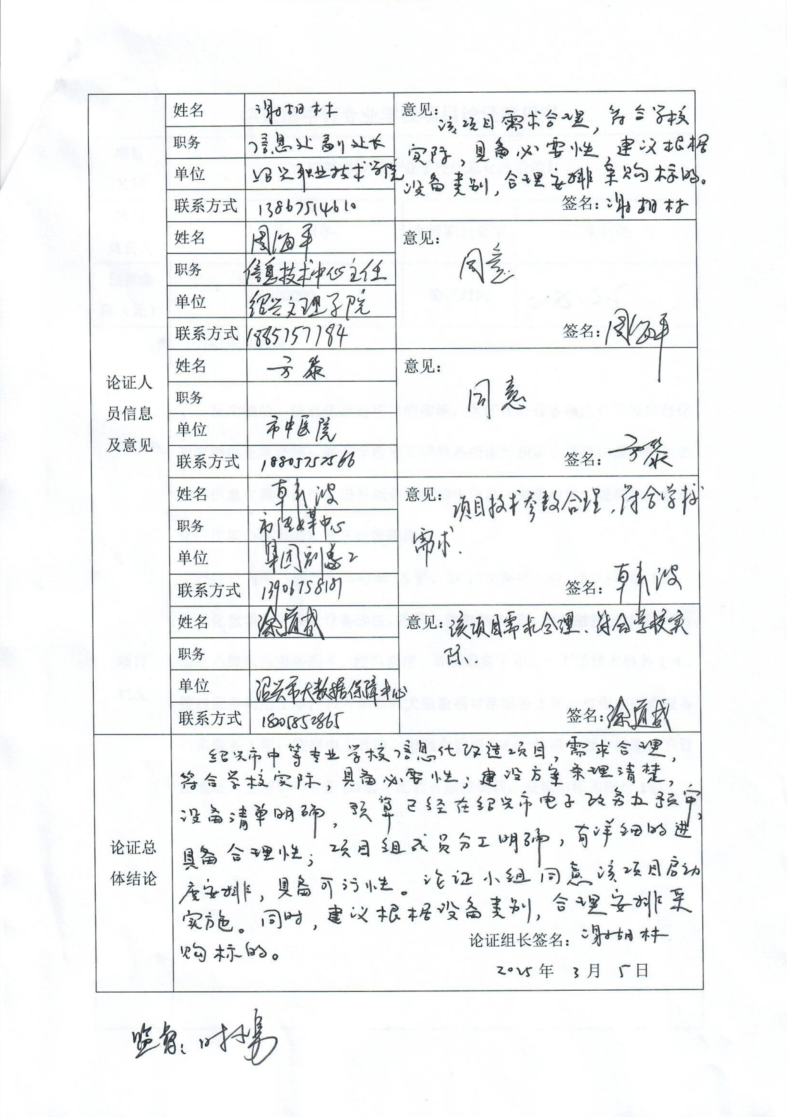 论证人
员信息
及意见
姓名 谢胡林
职务 信息处副处长
单位 绍兴职业技术学院
联系方式 13867514610
意见：该项目需求合理，符合学校
实际，具备必要性，建议根据
设备类别，合理安排采购标的。
签名：谢胡林
姓名 周海平
职务 信息技术中心主任
单位 绍兴文理学院
联系方式 1885757784
意见：
同意
签名：周海平
姓名 方泰
职务
单位 市中医院
联系方式 18805752566
意见：
同意
签名：方泰
姓名
职务
单位
联系方式
意见：项目技术参数合理，符合学校
需求.
签名：
姓名 徐道威
职务
单位 绍兴市大数据保障中心
联系方式 18005852865
意见：该项目需求合理、符合学校实
际.
签名：徐道威
论证总
体结论
绍兴市中等专业学校信息化改进项目，需求合理，
符合学校实际，具备必要性；建设方案条理清楚，
设备清单明确，预算已经在绍兴市电子政务办报审，
具备合理性；项目组成员分工明确，有详细的进
度安排，具备可行性。论证小组同意该项目启动
实施。同时，建议根据设备类别，合理安排采
购标的。
论证组长签名：谢胡林
2025年 3月 5日
监督：